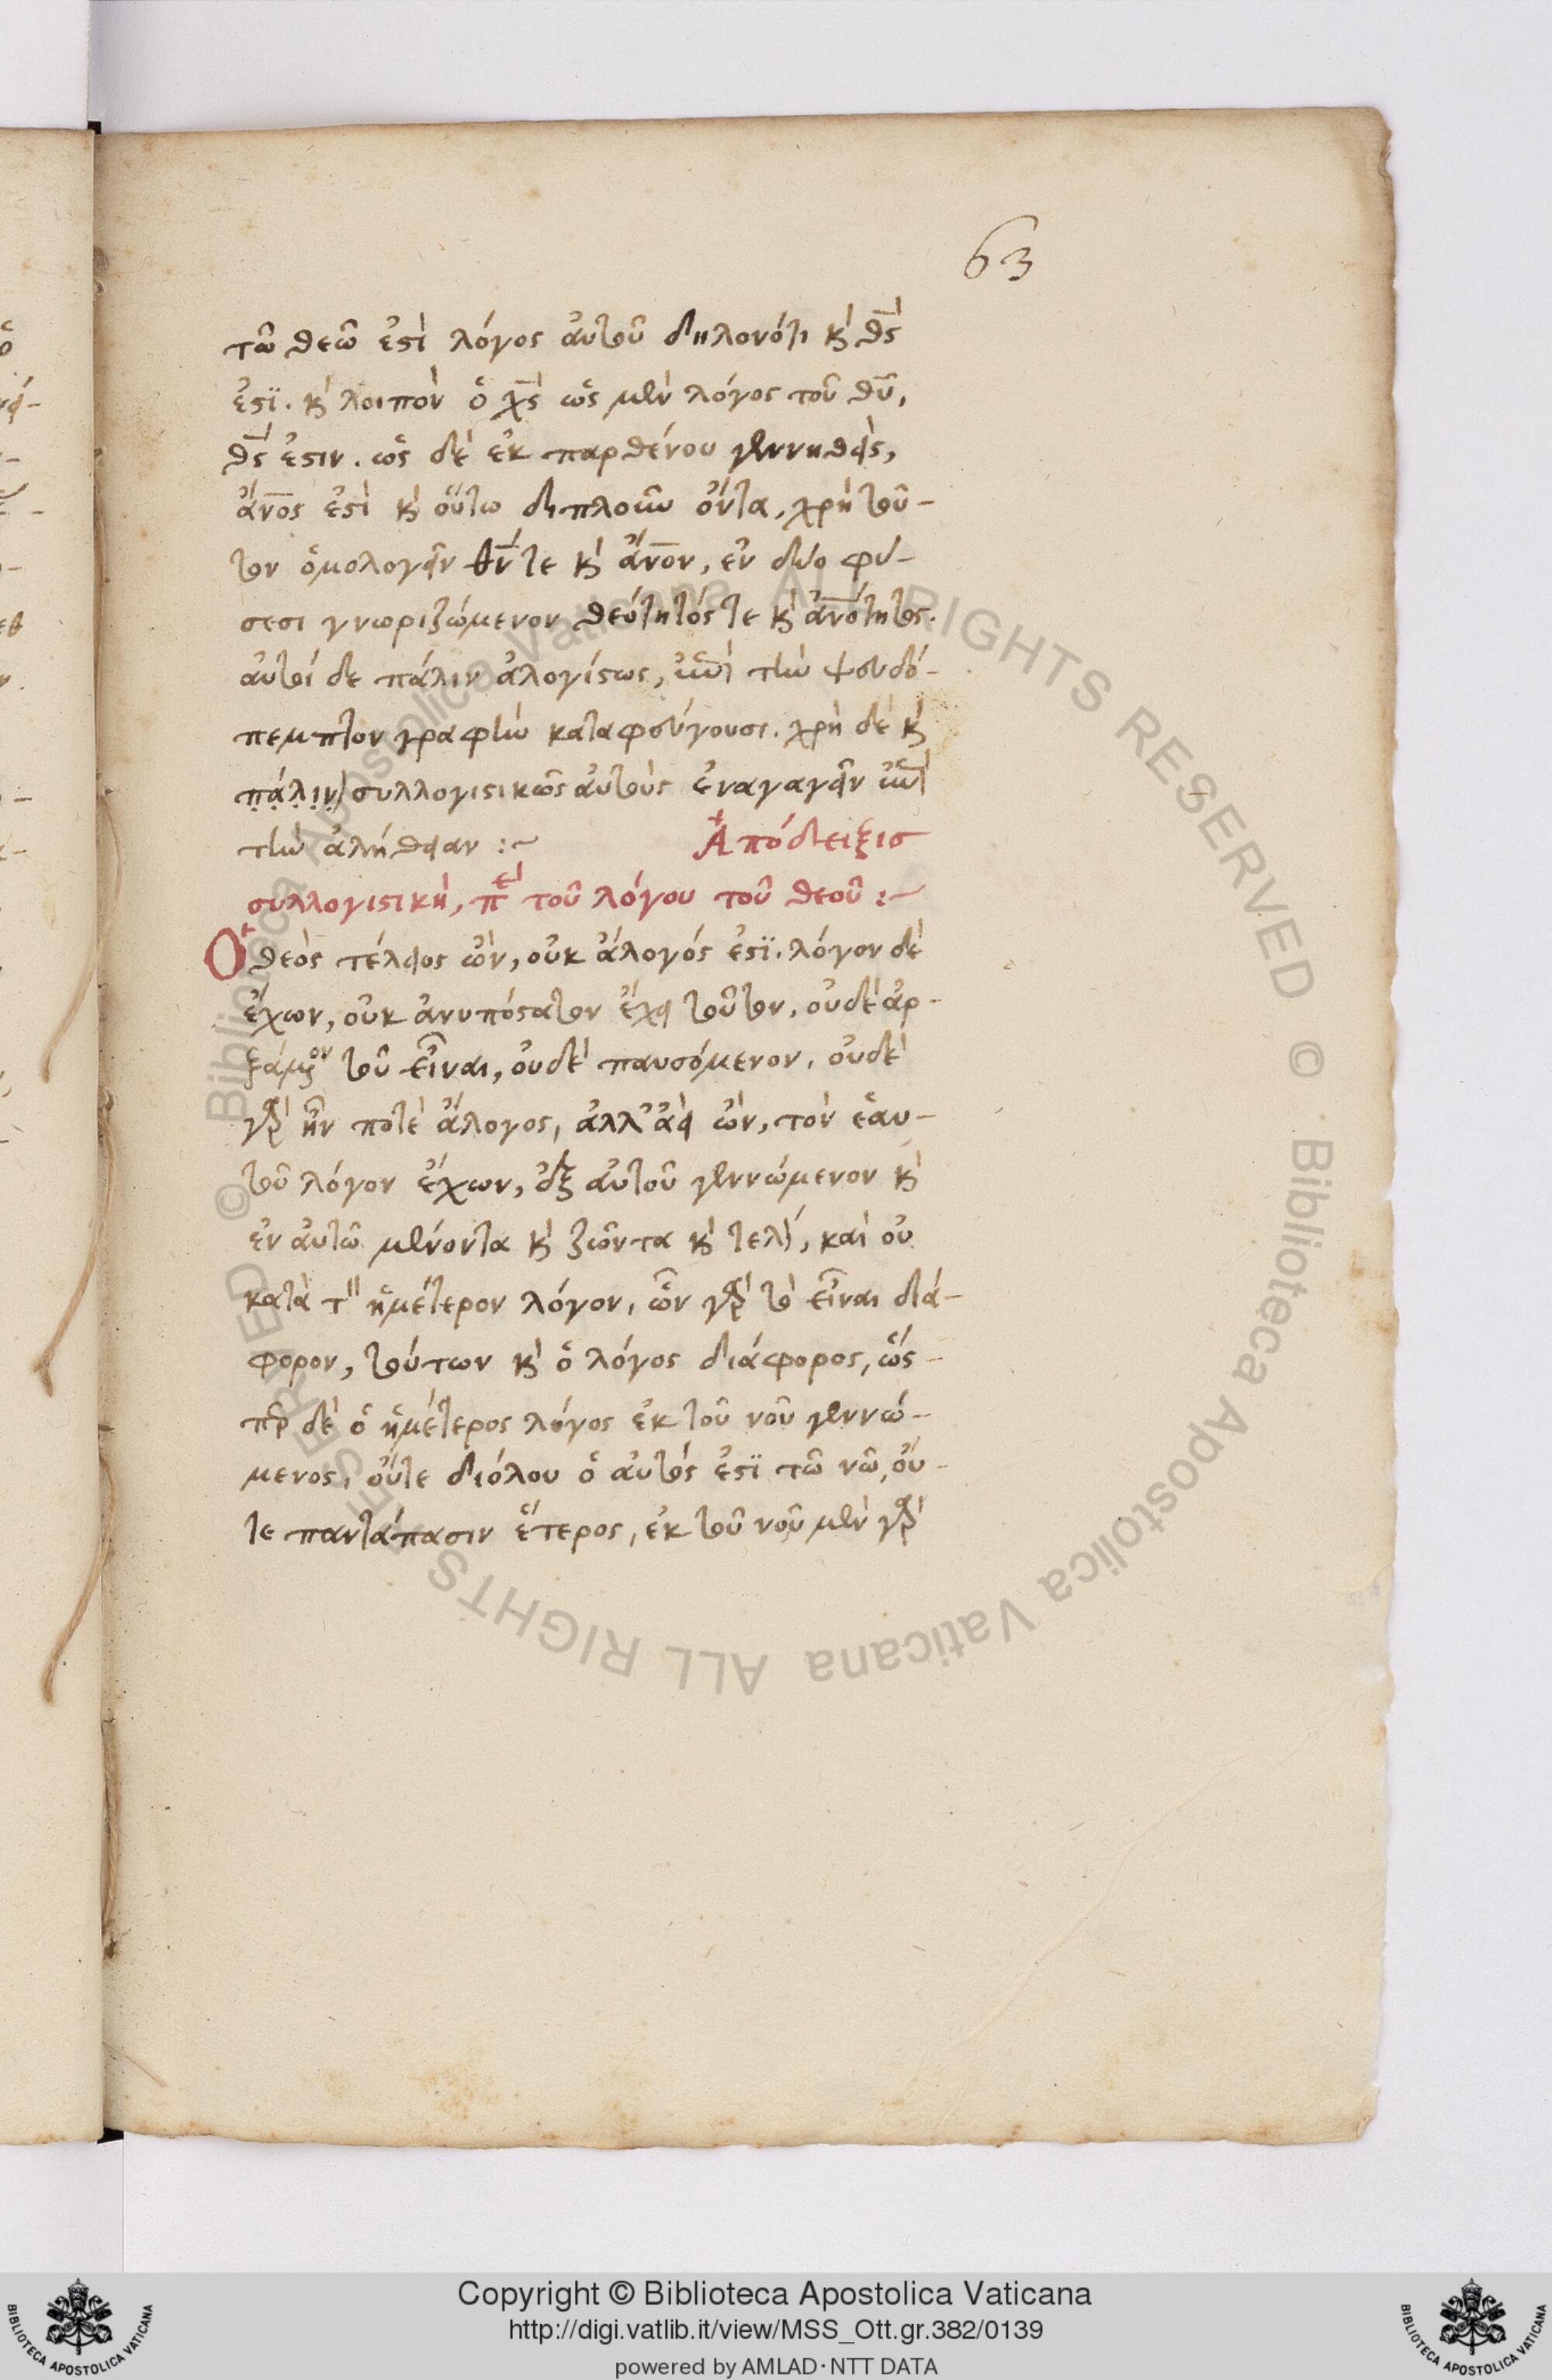 63
τῶ θεῶ ἐστὶ λόγος ἀυτοῦ δηλονότι κ̀ θς̅
ἐστϊ. κ̀ λοιπὸν ὁ χς̅ ὡς μὲν λόγος τοῦ θυ̅,
θς̅ ἐστιν. ὡς δὲ ἐκ παρθένου γεννηθεὶς,
ἄνο̅ς ἐστὶ κ̀ ὅυτω διπλοῦν ὄντα, χρὴ τοῦ-
τον ὁμολογεῖν θν̅ τε κ̀ ἄνο̅ν, ἐν δύο φύ-
σεσι γνωριζώμενον θεότητός τε κ̀ ἀνο̅́τητος.
ἀυτοί δε πάλιν ἀλογίστως, ἐπὶ τὴν ψευδό-
πεμπτον γραφὴν καταφεύγουσι. χρὴ δὲ κ̀
πάλιν συλλογιστικῶς ἀυτοὺς ἐναγαγεῖν ἐπὶ
τὴν ἀλήθειαν :~ Ἀπόδειξις
συλλογιστικὴ, πὲ τοῦ λόγου τοῦ θεοῦ :~
Ὁ θεὸς τέλειος ὢν, οὐκ ἄλογός ἐστϊ. λόγον δὲ
ἔχων, οὐκ ἀνυπόστατον ἔχει τοῦτον, οὐδὲ ἀρ-
ξάμενον τοῦ εἶναι, οὐδὲ παυσόμενον, οὐδὲ
γὰρ ἦν ποτὲ ἄλογος, ἀλλ' ἀεὶ ὢν, τὸν ἑαυ-
τοῦ λόγον ἔχων, ἐξ ἀυτοῦ γεννώμενον κ̀
ἐν ἀυτῶ μένοντα κ̀ ζῶντα κ̀ τελΐ, καὶ οὐ
κατὰ τὸν ἡμέτερον λόγον, ὧν γὰρ τὸ εἶναι διά-
φορον, τούτων κ̀ ὁ λόγος διάφορος, ὥς-
περ δὲ ὁ ἡμέτερος λόγος ἐκ τοῦ νοῦ γεννώ-
μενος, οὔτε διόλου ὁ ἀυτός ἐστϊ τῶ νῶ, οὔ-
τε παντάπασιν ἕτερος, ἐκ τοῦ νοῦ μὲν γὰρ
Copyright © Biblioteca Apostolica Vaticana
http://digi.vatlib.it/view/MSS_Ott.gr.382/0139
powered by AMLAD·NTT DATA